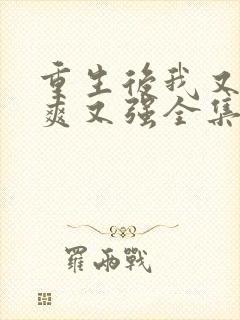 重生後我又
爽又强全集
羅雨戰